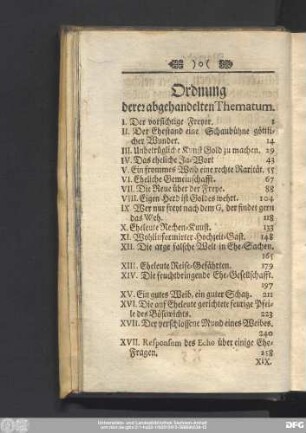 )o(
Ordnung
derer abgehandelten Thematum.
I. Der vorsichtige Freyer. 1
II. Der Ehestand eine Schaubühne göttli-
cher Wunder. 14
III. Unbetrügliche Kunst Gold zu machen. 29
IV. Das eheliche Ja-Wort 43
V. Ein frommes Weib eine rechte Rarität. 55
VI. Eheliche Gemeinschafft. 67
VII. Die Reue über der Freye. 88
VIII. Eigen-Herd ist Goldes wehrt. 104
IX. Wer nur freyt nach dem G, der findet gern
das Weh. 118
X. Eheleute Rechen-Kunst. 133
XI. Wohlinformirter Hochzeit-Gast. 148
XII. Die arge falsche Welt in Ehe-Sachen.
165
XIII. Eheleute Reise-Gefährten. 179
XIV. Die feuchtbringende Ehe-Gesellschafft.
197
XV. Ein gutes Weib, ein guter Schatz. 211
XVI. Die auf Eheleute gerichtete feurige Pfei-
le des Bösewichts. 223
XVII. Der verschlossene Mund eines Weibes.
240
XVII. Responsum des Echo über einige Ehe-
Fragen. 258
XIX.